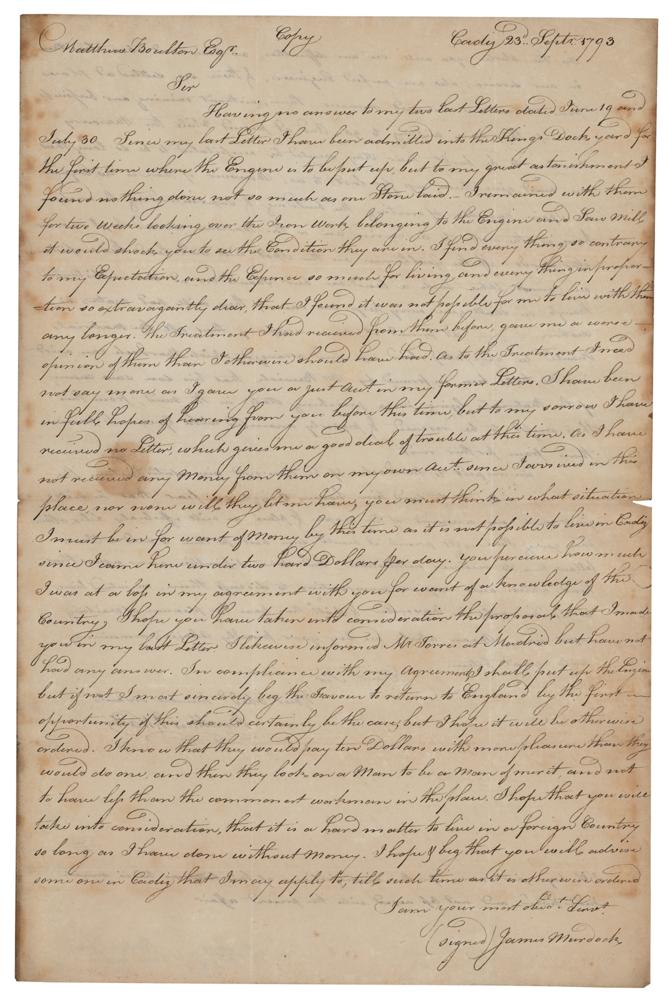 Copy
Cadiz 23d. Septr. 1793
Matthew Boulton Esqr.
Sir
Having no answer to my two last Letters dated June 19 and
July 30. Since my last Letter I have been admitted into the Kings Dock yard for
the first time where the Engine is to be put up, but to my great astonishment I
found nothing done, not so much as one Stone laid. I remained with them
for two Weeks looking over the Iron Work belonging to the Engine and Saw Mill
it would shock you to see the Condition they are in. I find every thing so contrary
to my Expectation, and the Expence so much for living and every thing in propor-
-tion so extravagantly dear, that I found it was not possible for me to live with them
any longer. The Treatment I had received from them before, gave me a worse
opinion of them than I otherwise should have had. As to the Treatment I need
not say more as I gave you a just Acct. in my former Letters. I have been
in full hopes of hearing from you before this time, but to my sorrow I have
received no Letter, which gives me a good deal of trouble at this time. As I have
not received any Money from them on my own Acct. since I arrived in this
place, nor none will they let me have, you must think in what situation
I must be in for want of Money by this time as it is not possible to live in Cadiz
since I came here under two hard Dollars per day. You perceive how much
I was at a loss in my agreement with you for want of a knowledge of the
Country, I hope you have taken into consideration the proposals that I made
you in my last Letter I likewise informed Mr. Torres at Madrid but have not
had any answer. In compliance with my Agreement I shall put up the Engine
but if not I most sincerely beg the Favour to return to England by the first
opportunity, if this should certainly be the case, but I hope it will be otherwise
ordered. I know that they would pay ten Dollars with more pleasure than they
would do one, and then they look on a Man to be a Man of merit, and not
to have less than the commonest workman in the place. I hope that you will
take into consideration, that it is a hard matter to live in a foreign Country
so long as I have done without Money. I hope & beg that you will advise
some one in Cadiz that I may apply to, till such time as it is otherwise ordered
I am your most obedt. Servt.
(signed) James Murdock